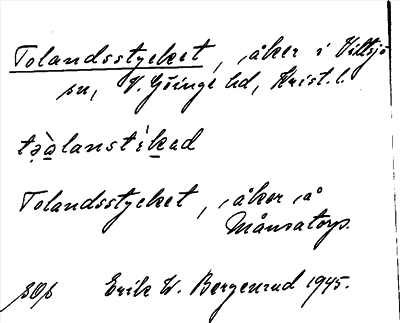 Tolandsstycket, åker i Vittsjö
sn, V. Göinge hd, Krist. l.
tə̀ạlanstíkad
Tolandsstycket, åker å
Månsatorp.
Erik W. Bergenrud 1945.